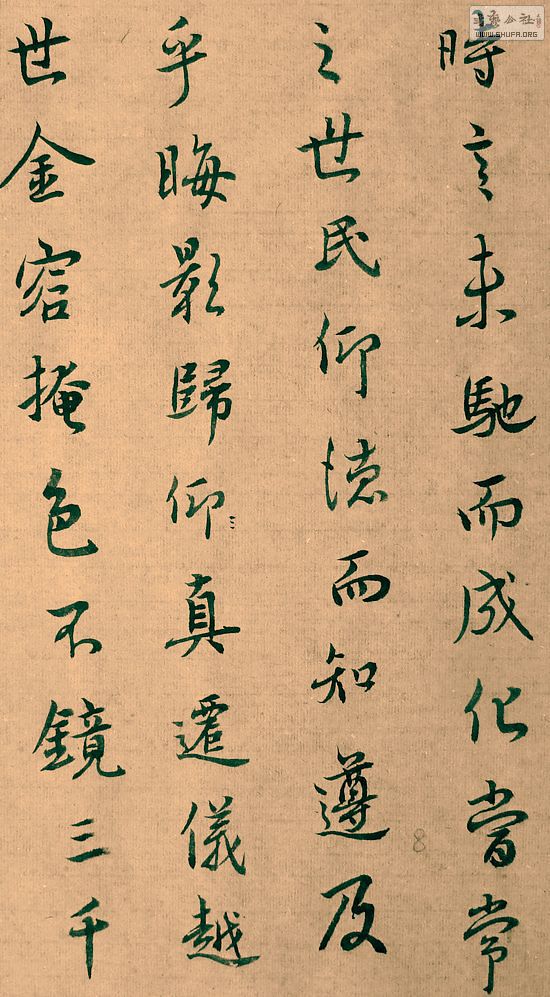 時言未馳而成化當常
之世民仰德而知遵及
乎晦影歸仰真遷儀越
世金容掩色不鏡三千
8
WWW.SHUFA.ORG